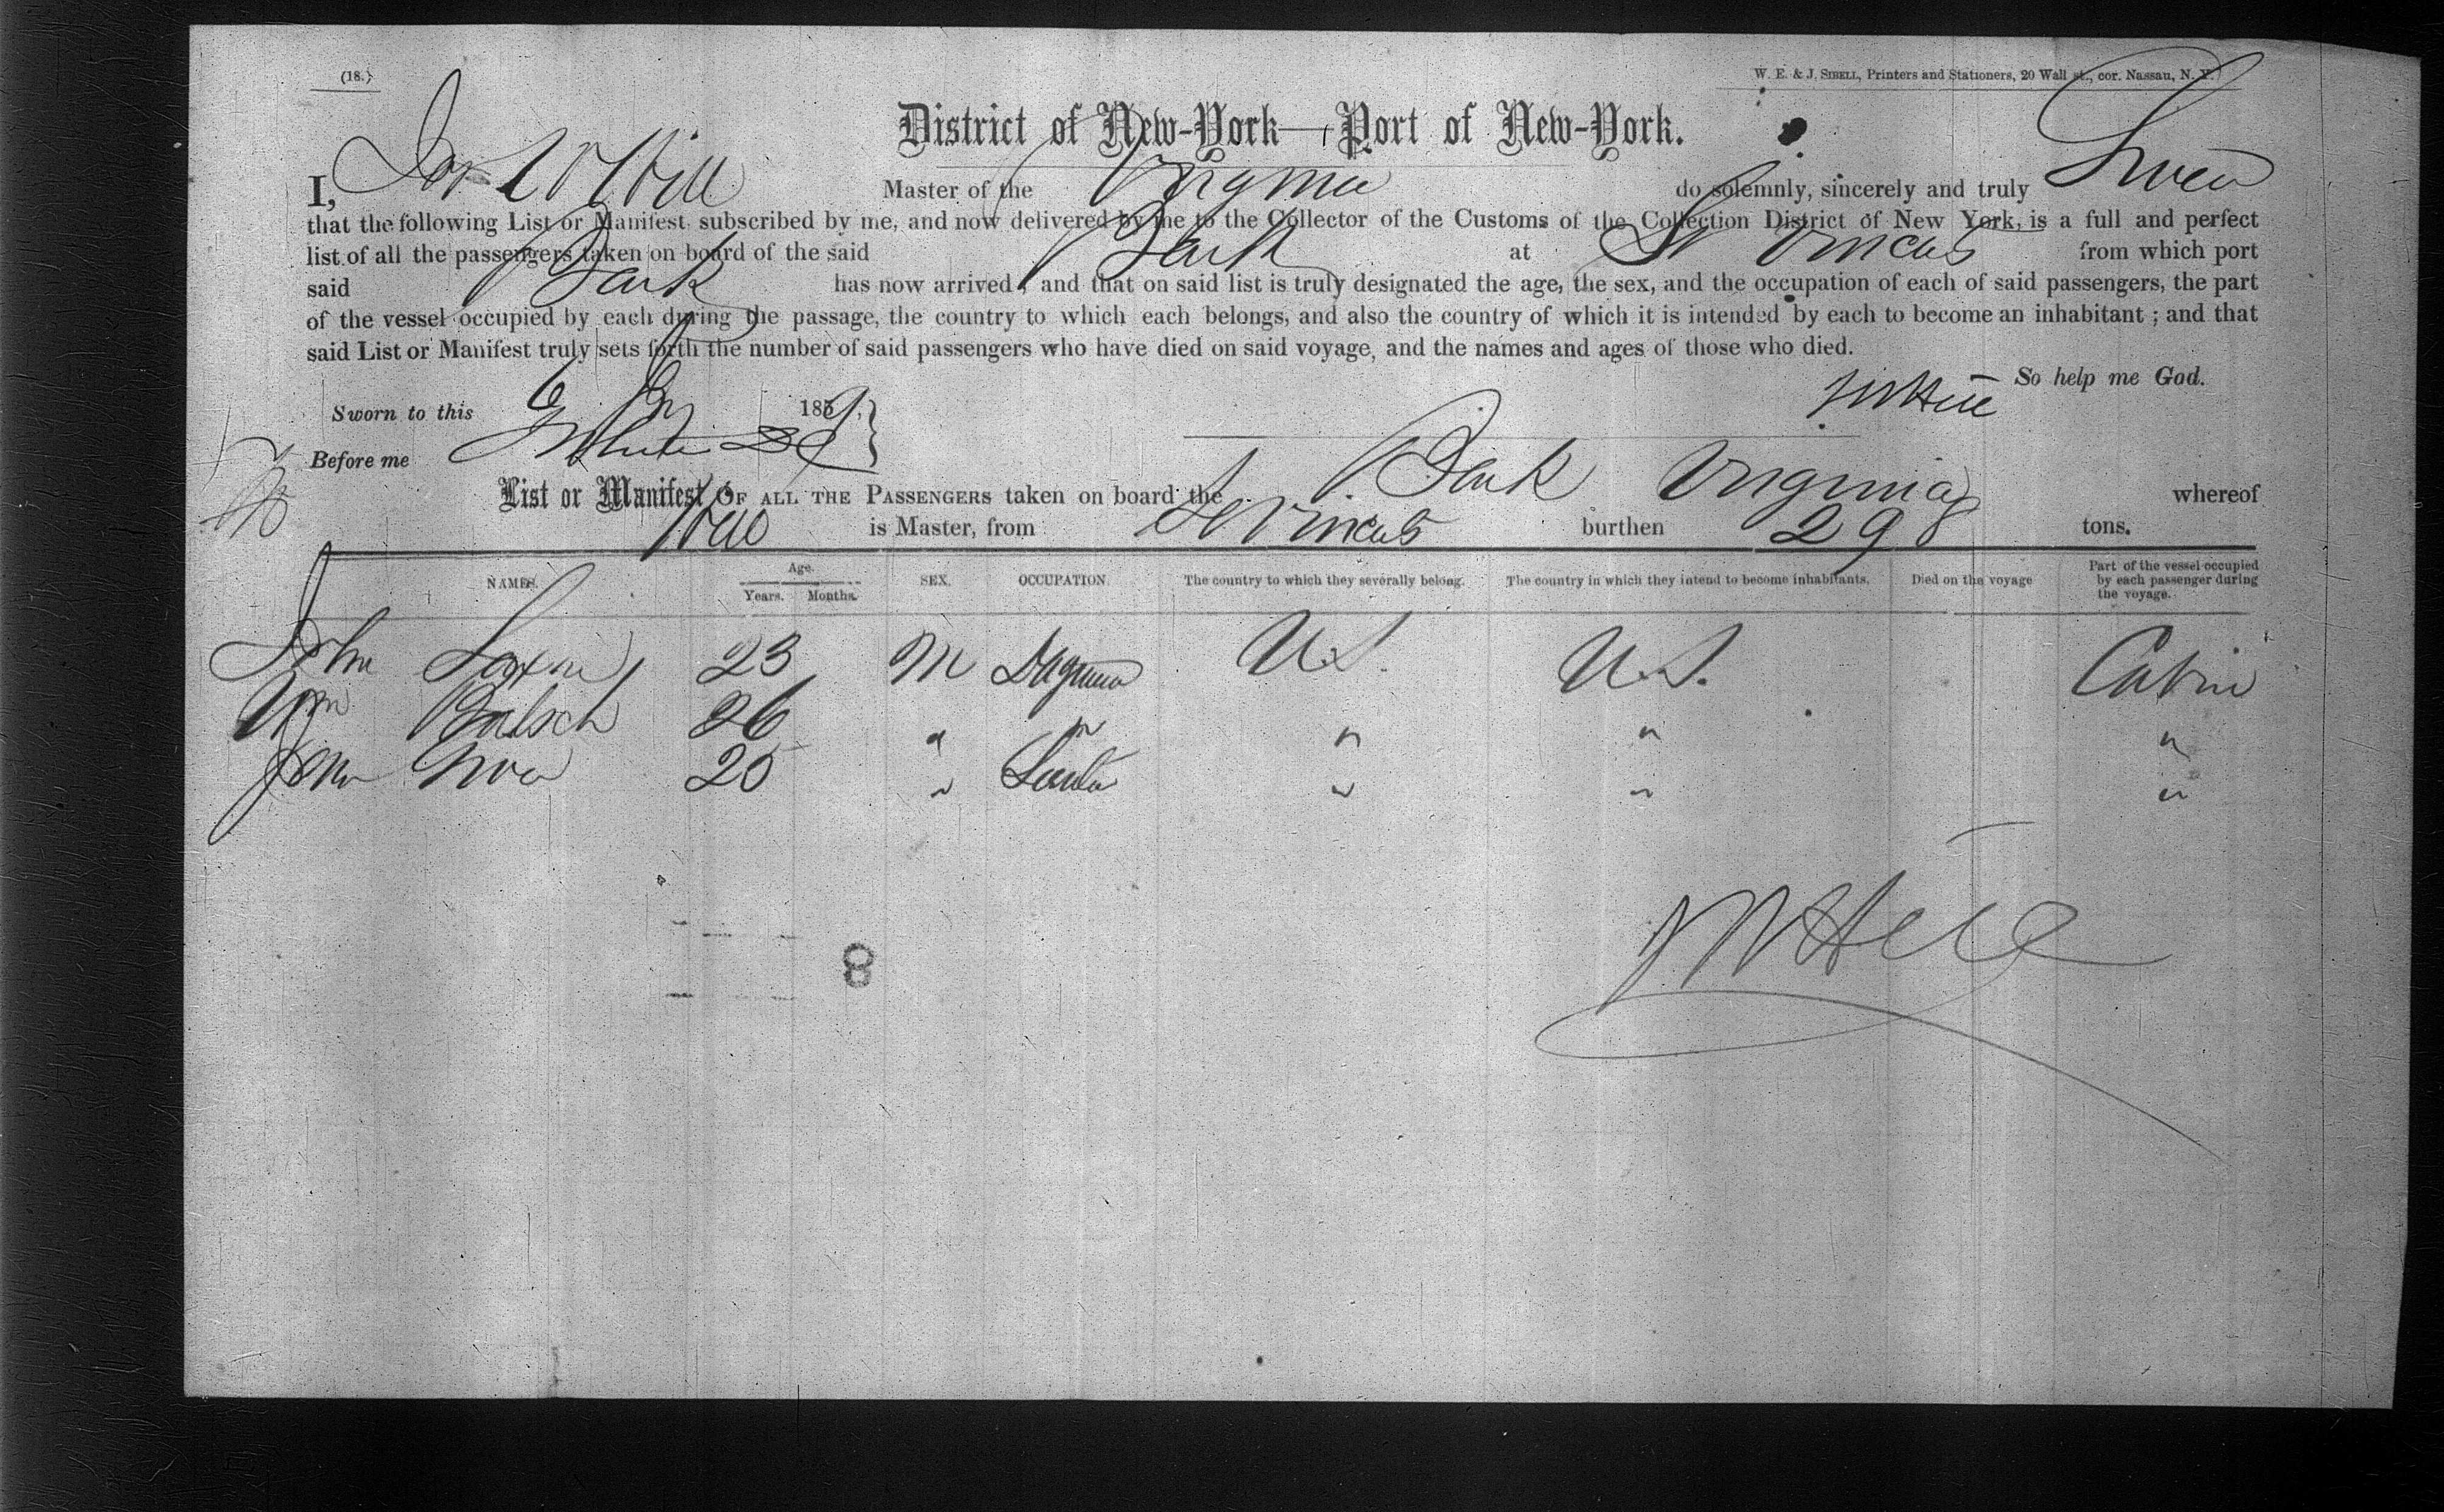 (18.)
W. E. & J. SIBELL, Printers and Stationers, 20 Wall st., cor. Nassau, N. Y.
District of New-York—Port of New-York.
I, Hill Master of the Virginia do solemnly, sincerely and truly Swear
that the following List or Manifest, subscribed by me, and now delivered by me to the Collector of the Customs of the Collection District of New York, is a full and perfect
list of all the passengers taken on board of the said Bark at St Vincents from which port
said Bark has now arrived, and that on said list is truly designated the age, the sex, and the occupation of each of said passengers, the part
of the vessel occupied by each during the passage, the country to which each belongs, and also the country of which it is intended by each to become an inhabitant; and that
said List or Manifest truly sets forth the number of said passengers who have died on said voyage, and the names and ages of those who died.
So help me God.
Sworn to this 1859, Hill
Before me White
List or Manifest OF ALL THE PASSENGERS taken on board the Bark Virginia whereof
Hill is Master, from St Vincents burthen 298 tons.
NAMES. Age. Years. Months. SEX. OCCUPATION. The country to which they severally belong. The country in which they intend to become inhabitants. Died on the voyage Part of the vessel occupied by each passenger during the voyage.
John 23 M U.S. U.S. Cabin
Wm Balsch 26 " " " " "
John 25 " " " "
8